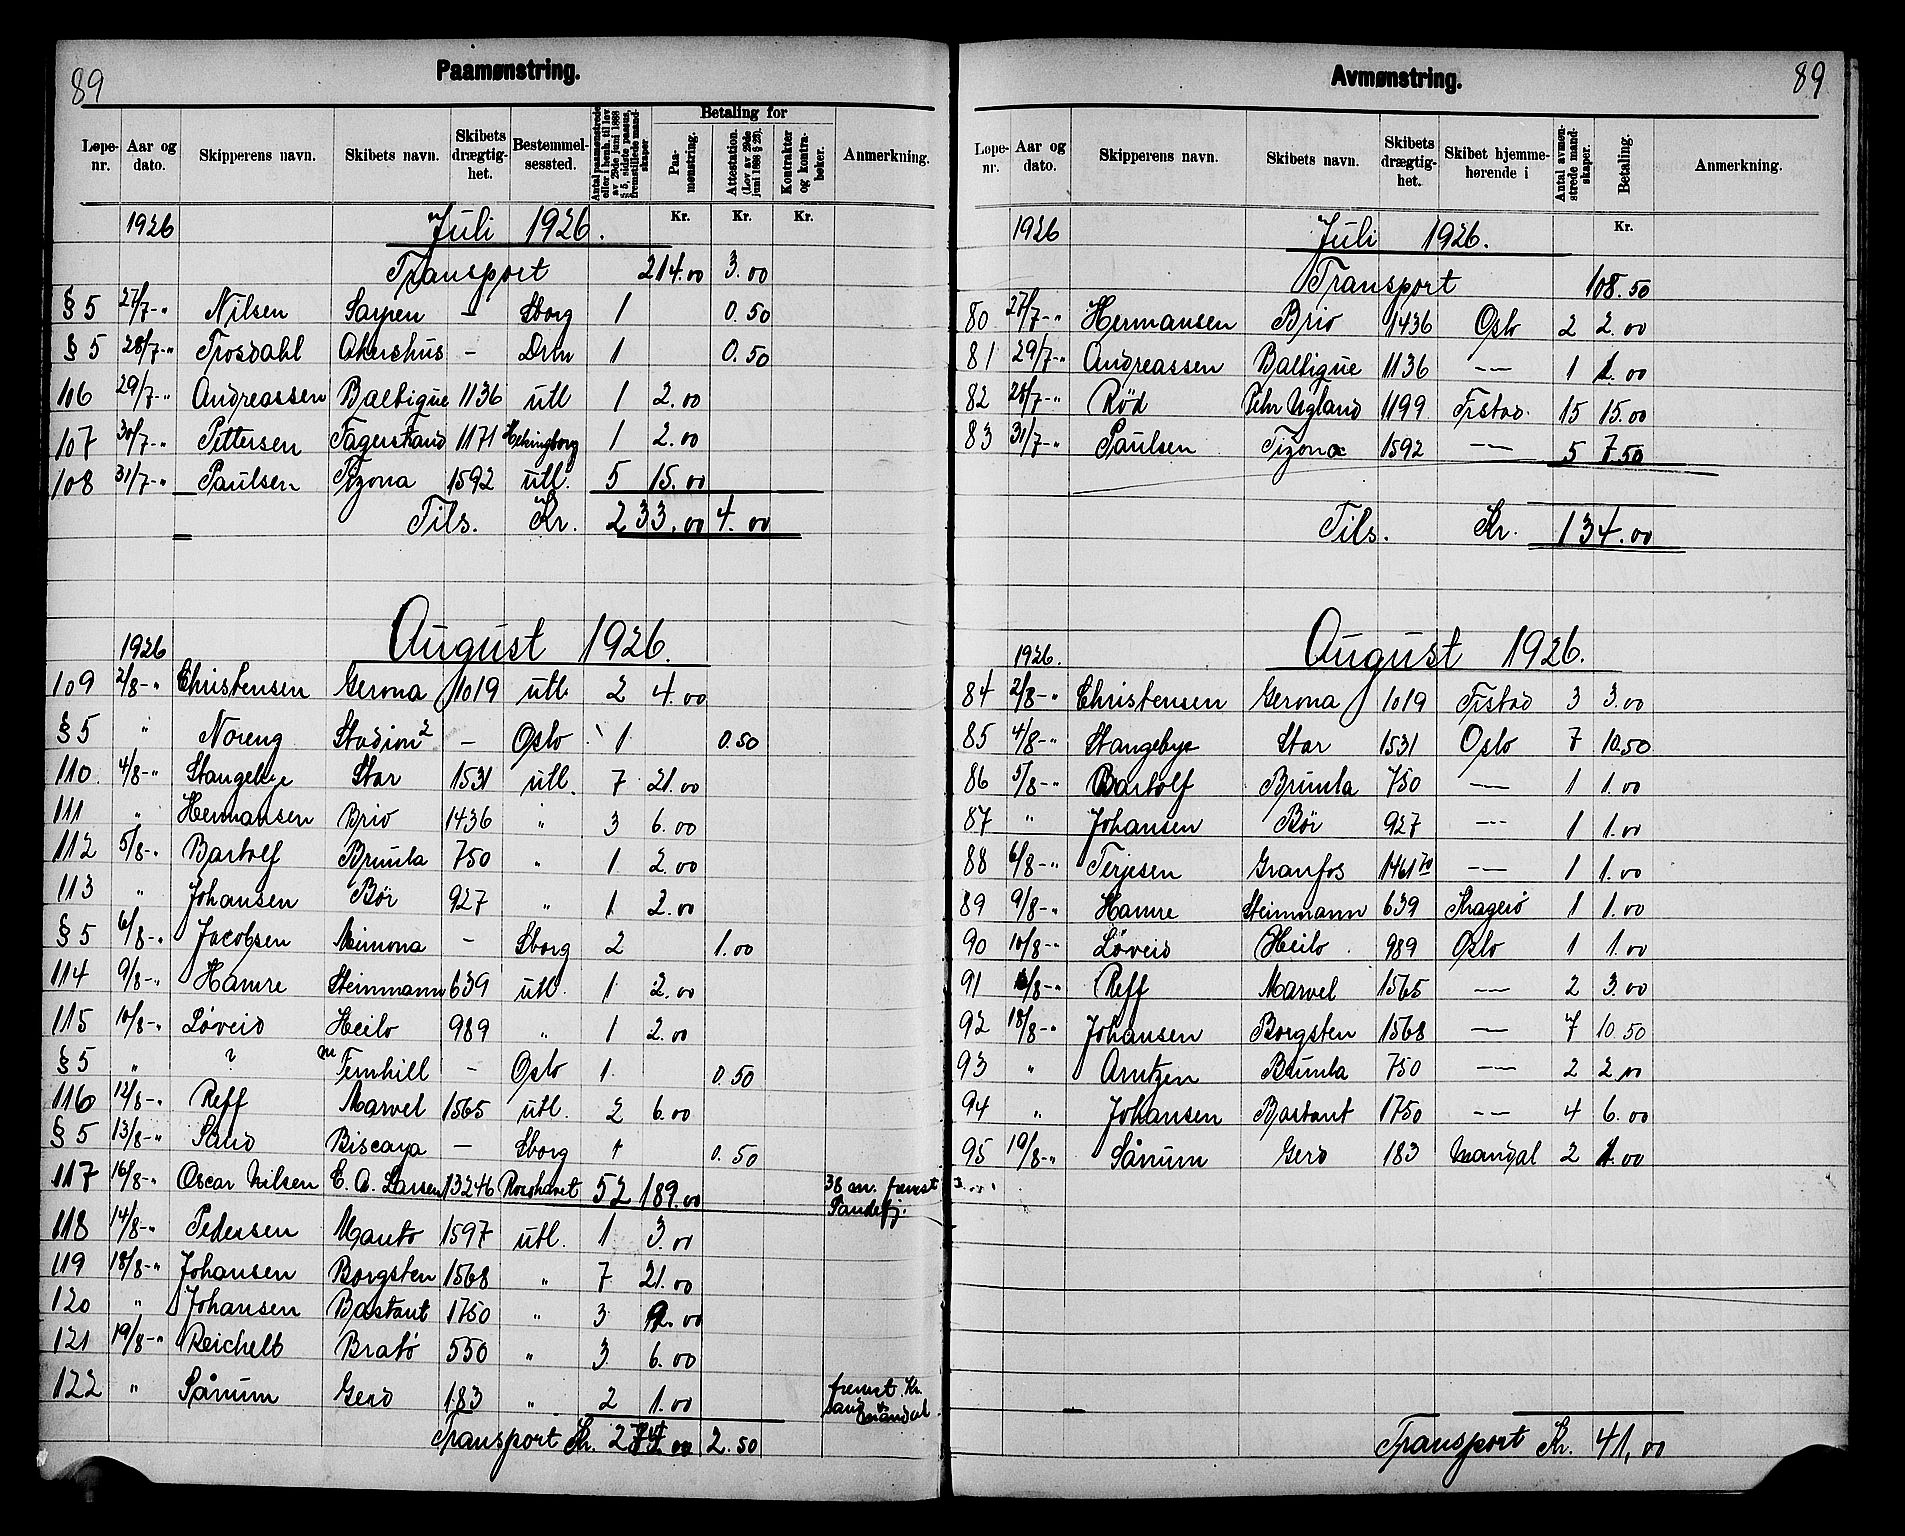 89
Paamønstring.
Løpe-nr. Aar og dato. Skipperens navn. Skibets navn. Skibets drægtig-het. Bestemmel-sessted. Antal paamønstrede eller i henh. til lov av 29de juni 1888 § 5, sidste passus, fremstillede mand-skaper Betaling for Paa-mønstring. Attestation. (Lov av 29de juni 1888 § 25). Kontrakter og kontra-bøker. Anmerkning.
Kr. Kr. Kr.
1926 Juli 1926.
Transport 214.00 3.00
§ 5 27/7-" Nilsen Sarpen - Sborg 1 0.50
§ 5 28/7-" Trosdahl Akershus - Drm 1 0.50
106 29/7-" Andreassen Baltique 1136 utl 1 2.00
107 30/7-" Pettersen Fagerstrand 1171 Helsingborg 1 2.00
108 31/7-" Paulsen Tizona 1592 utl. 5 15.00
Tils. Kr. 233.00 4.00
1926 August 1926.
109 2/8-" Christensen Gerona 1019 utl. 2 4.00
§ 5 " Noreng Stadion 2 - Oslo 1 0.50
110 4/8-" Stangebye Star 1531 utl. 7 21.00
111 " Hermansen Brio 1436 " 3 6.00
112 5/8-" Bartolf Brumla 750 " 1 2.00
113 " Johansen Bør 927 " 1 2.00
§ 5 6/8-" Jacobsen Mimona - Sborg 2 1.00
114 9/8-" Hamre Steinmann 639 utl. 1 2.00
115 10/8-" Løveid Heilo 989 " 1 2.00
§ 5 " ? m Fernhill - Oslo 1 0.50
116 12/8-" Reff Marvel 1565 utl. 2 6.00
§ 5 13/8-" Sand Biscaya - Sborg 1 0.50
117 16/8-" Oscar Nilsen C. A. Larsen 13246 Rosshavet 52 189.00 38 m. fremst Sandefj.
118 14/8-" Pedersen Manto 1597 utl. 1 3.00
119 18/8-" Johansen Borgsten 1568 " 7 21.00
120 " Johansen Bastant 1750 " 3 9.00
121 19/8-" Reichelt Bratø 550 " 3 6.00
122 " Sånum Gerd 183 " 2 1.00 fremst. Kr. sand & Mandal.
Transport Kr. 274.00 2.50
89
Avmønstring.
Løpe-nr. Aar og dato. Skipperens navn. Skibets navn. Skibets drægtig-het. Skibet hjemme-hørende i Antal avmøn-strede mand-skaper. Betaling. Anmerkning.
Kr.
1926 Juli 1926.
Transport 108.50
80 27/7-" Hermansen Brio 1436 Oslo 2 2.00
81 29/7-" Andreassen Baltique 1136 -"- 1 1.00
82 28/7-" Rød Pehr Ugland 1199 Frstad. 15 15.00
83 31/7-" Paulsen Tizona 1592 -"- 5 7.50
Tils. Kr. 134.00
1926. August 1926.
84 2/8-" Christensen Gerona 1019 Frstad 3 3.00
85 4/8-" Stangebye Star 1531 Oslo 7 10.50
86 5/8-" Bartolf Brumla 750 -"- 1 1.00
87 " Johansen Bør 927 -"- 1 1.00
88 6/8-" Terjesen Granfos 1461 70 -"- 1 1.00
89 9/8-" Hamre Steinmann 639 Kragerö 1 1.00
90 10/8-" Løveid Heilo 989 Oslo 1 1.00
91 /8-" Reff Marvel 1565 -"- 2 3.00
92 18/8-" Johansen Borgsten 1568 -"- 7 10.50
93 " Arntzen Brumla 750 -"- 2 2.00
94 " Johansen Bastant 1750 -"- 4 6.00
95 19/8-" Sånum Gerd 183 Mandal 2 1.00
Transport Kr. 41,00